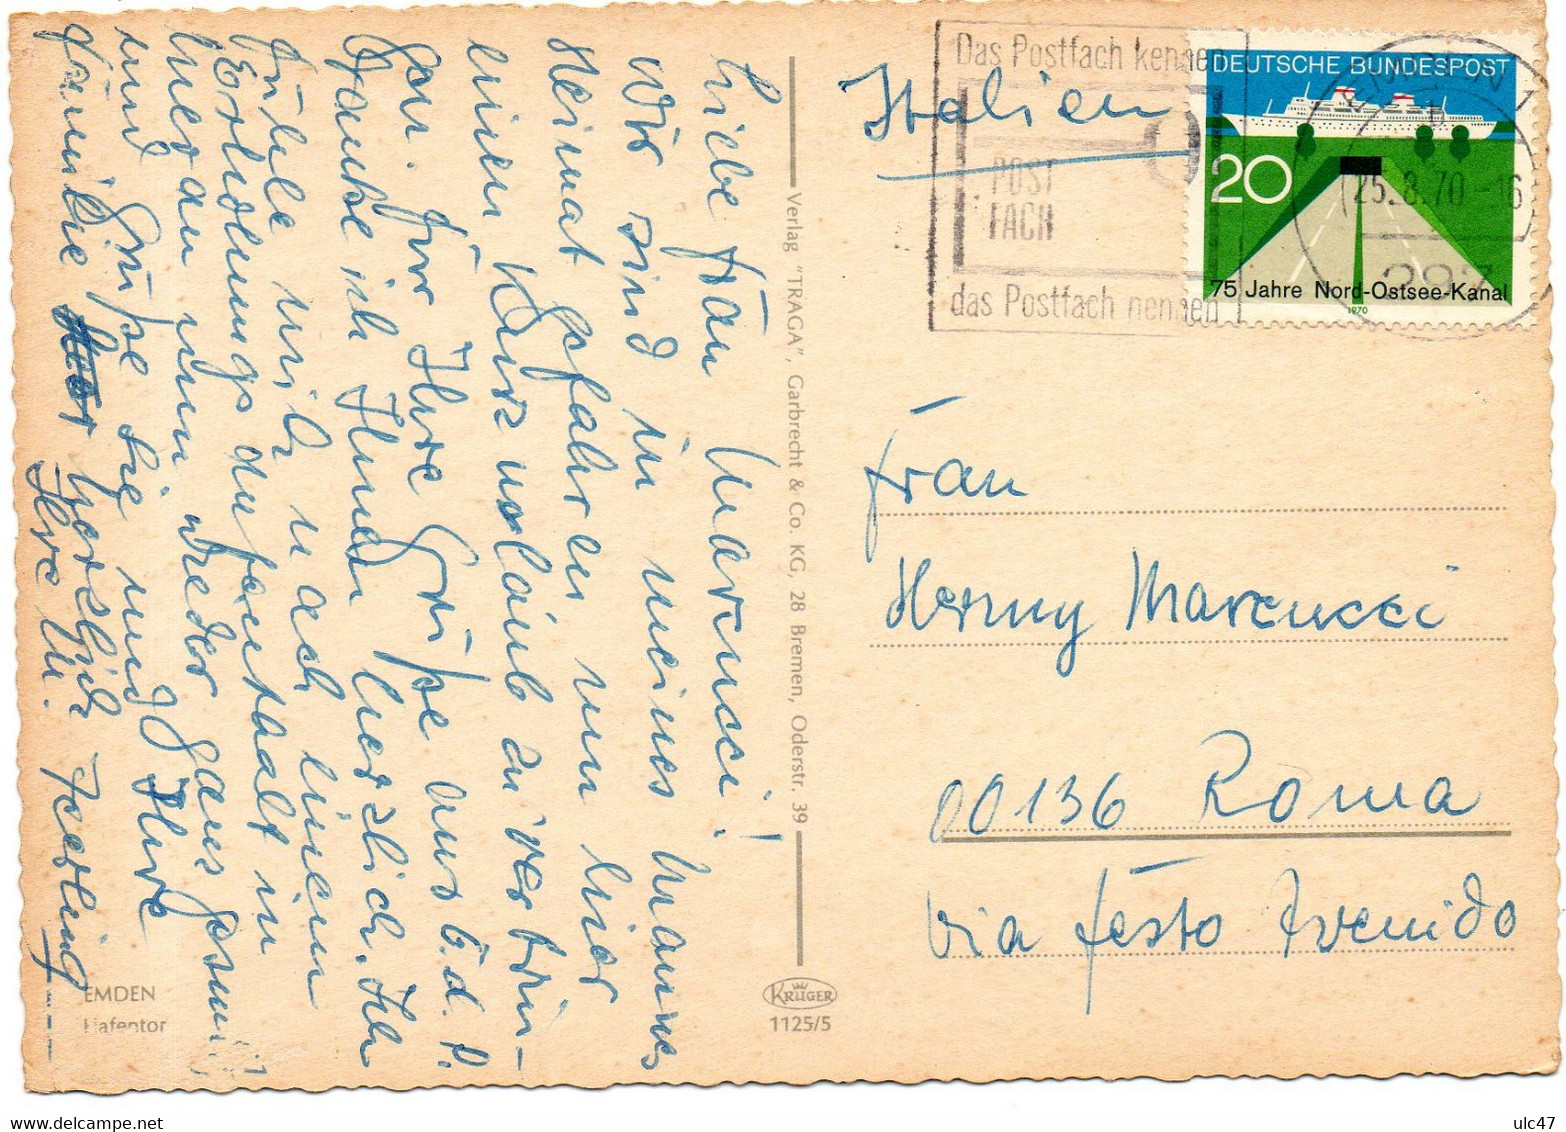 Liebe Frau Marcucci!
Wir sind in meines Mannes
Heimat gefahren um hier
einen Kurzurlaub zu verbrin-
gen. Für Ihre Grüße aus C. d. P.
danke ich Ihnen herzlich. Ich
fühle mich nach einem
Erholungsaufenthalt in
Meran nun wieder ganz gesund
und grüße Sie und Ihre
Familie herzlich
Ihre M. Feerling
EMDEN
Hafentor
Verlag "TRAGA", Garbrecht & Co. KG, 28 Bremen, Oderstr. 39
KRÜGER
1125/5
Das Postfach kennen
POST
FACH
das Postfach nennen
Italien
DEUTSCHE BUNDESPOST
20
75 Jahre Nord-Ostsee-Kanal
1970
EMDEN 1
b
25.8.70-16
297
Frau
Henny Marcucci
00136 Roma
Via Festo Avenido
www.delcampe.net
ulc47